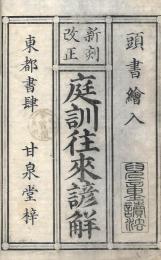 頭書繪入
新刻
改正
庭訓往來諺解
東都書肆 甘泉堂梓